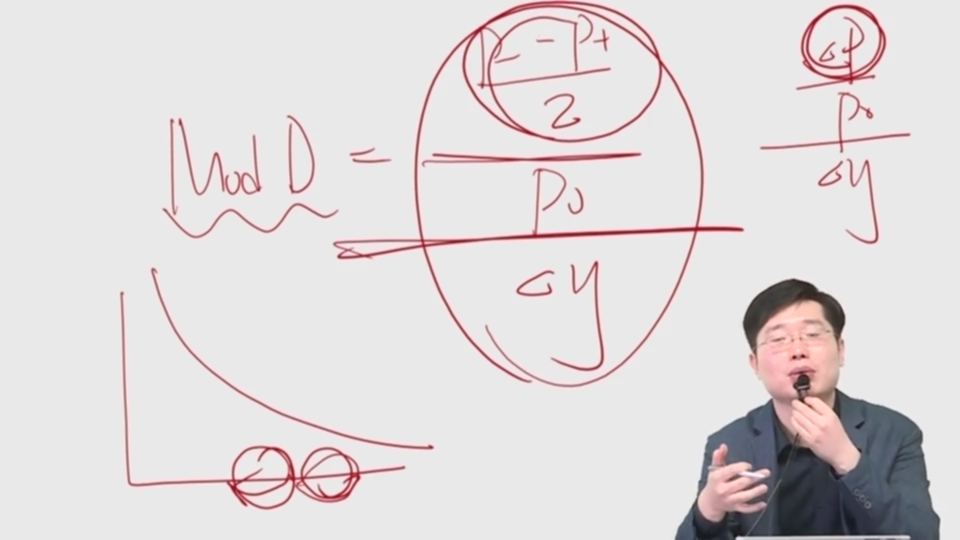 Mod D = ((P- - P+) / 2) / P0 / ΔY
ΔP / P0 / ΔY